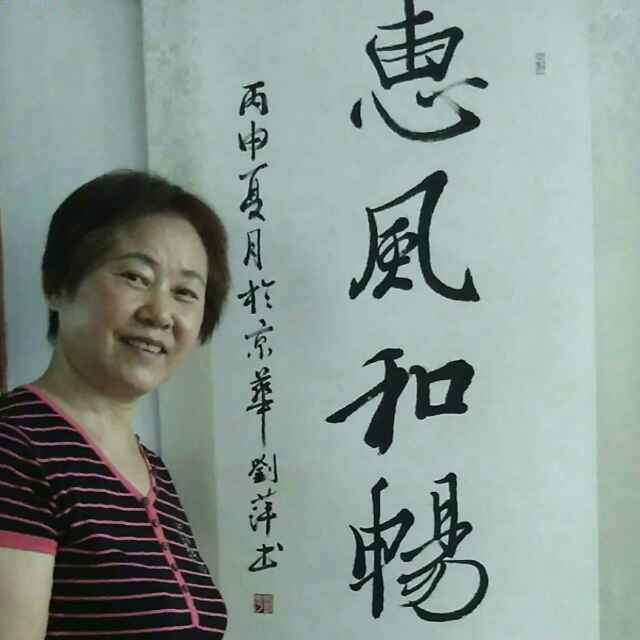 惠風和暢
丙申夏月於京華劉萍书